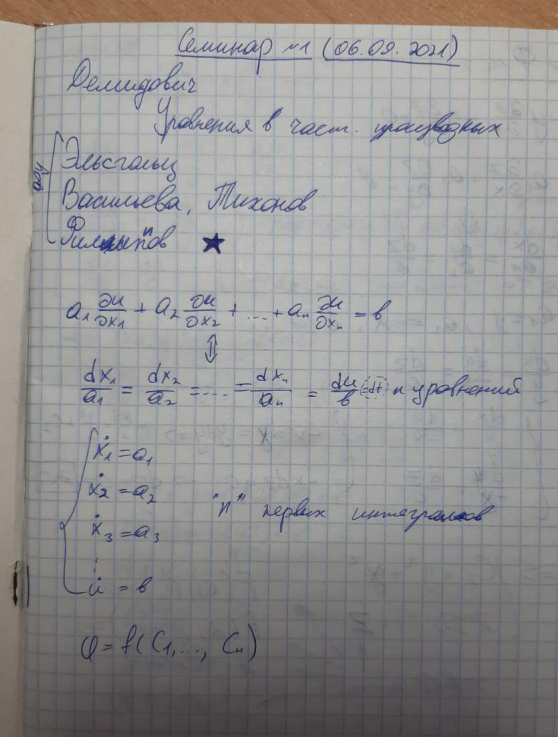 Семинар №1 (06.09.2021)
Демидович
Уравнения в част. производных
Эльсгольц
Васильева, Тихонов
Филиппов ★
a₁ ∂u/∂x₁ + a₂ ∂u/∂x₂ + ... + aₙ ∂u/∂xₙ = b
⇕
dx₁/a₁ = dx₂/a₂ = ... = dxₙ/aₙ = du/b (=dt) n уравнений
ẋ₁ = a₁
ẋ₂ = a₂
"n" первых интегралов
ẋ₃ = a₃
⋮
u̇ = b
φ = f(C₁, ..., Cₙ)